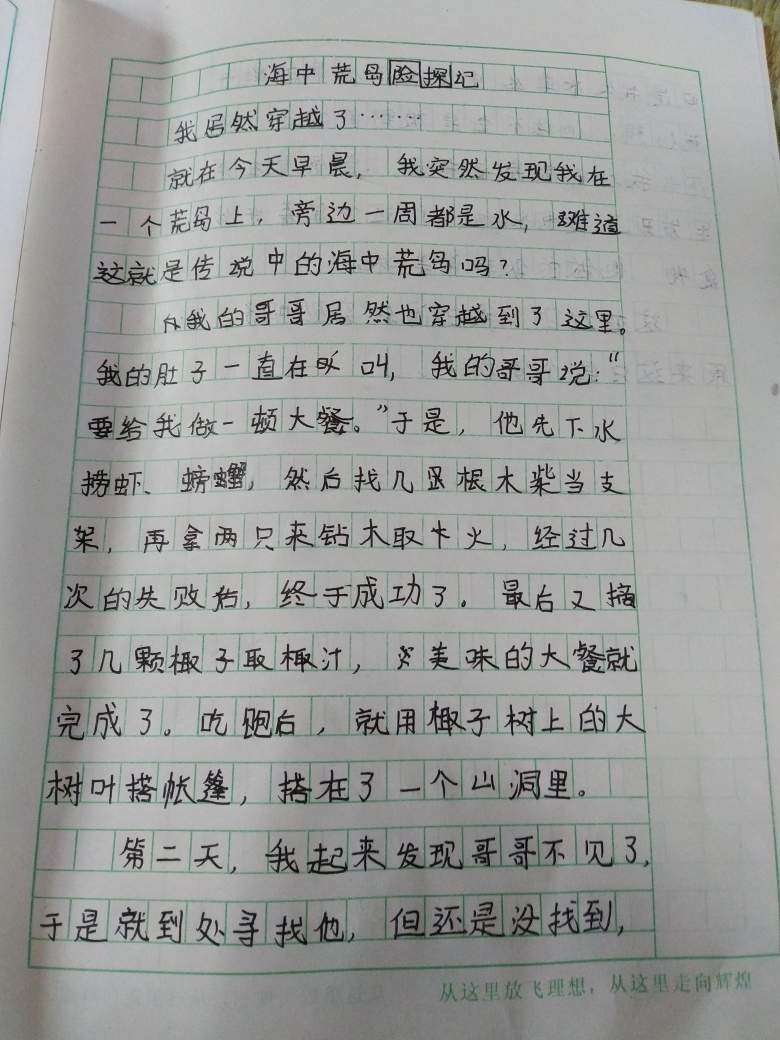 海中荒岛险探记
我居然穿越了……
就在今天早晨，我突然发现我在
一个荒岛上，旁边一周都是水，难道
这就是传说中的海中荒岛吗？
我的哥哥居然也穿越到了这里。
我的肚子一直在叫，我的哥哥说：“
要给我做一顿大餐。”于是，他先下水
捞虾、螃蟹，然后找几根木柴当支
架，再拿两只来钻木取火，经过几
次的失败后，终于成功了。最后又摘
了几颗椰子取椰汁，美味的大餐就
完成了。吃饱后，就用椰子树上的大
树叶搭帐篷，搭在了一个山洞里。
第二天，我起来发现哥哥不见了，
于是就到处寻找他，但还是没找到，
从这里放飞理想，从这里走向辉煌